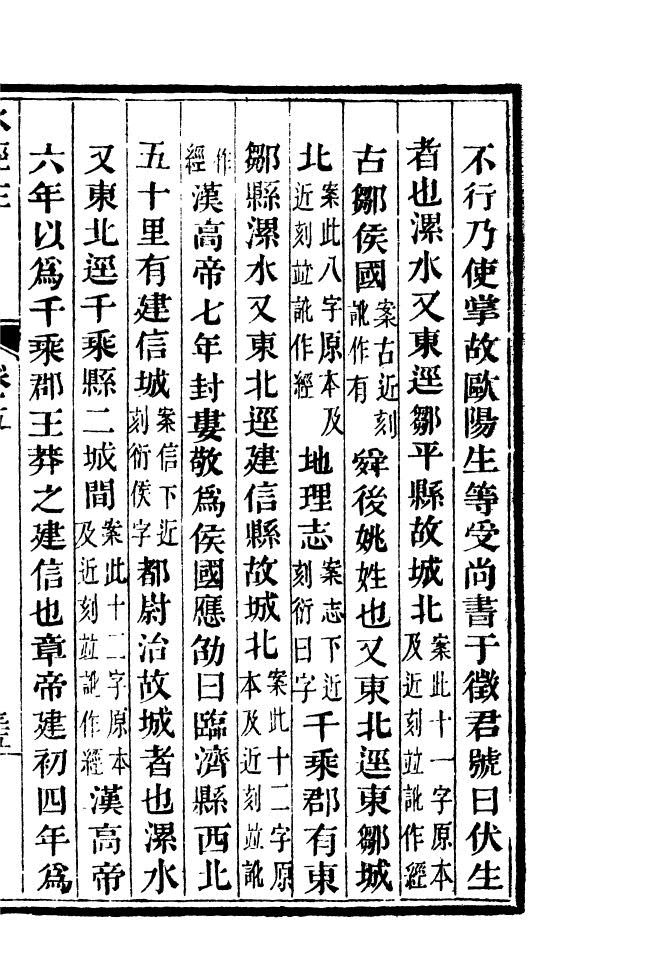 不行乃使掌故歐陽生等受尚書于徵君號曰伏生
者也漯水又東逕鄒平縣故城北案此十一字原本及近刻竝訛作經
古鄒侯國案古近刻訛作有舜後姚姓也又東北逕東鄒城
北案此八字原本及近刻竝訛作經地理志案志下近刻衍曰字千乘郡有東
鄒縣漯水又東北逕建信縣故城北案此十二字原本及近刻竝訛
作經漢高帝七年封婁敬爲侯國應劭曰臨濟縣西北
五十里有建信城案信下近刻衍侯字都尉治故城者也漯水
又東北逕千乘縣二城間案此十二字原本及近刻竝訛作經漢高帝
六年以爲千乘郡王莽之建信也章帝建初四年爲
水經注 卷五